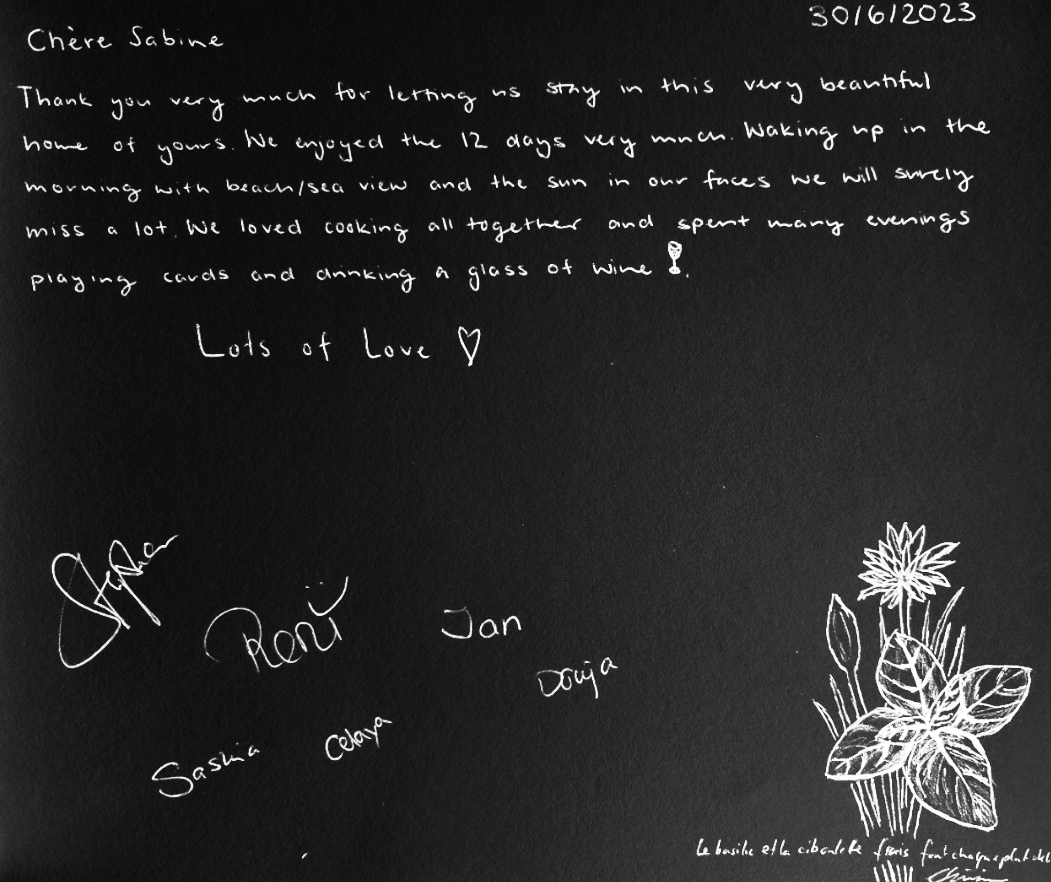 30/6/2023
Chère Sabine
Thank you very much for letting us stay in this very beautiful
home of yours. We enjoyed the 12 days very much. Waking up in the
morning with beach/sea view and the sun in our faces we will surely
miss a lot. We loved cooking all together and spent many evenings
playing cards and drinking a glass of wine !.
Lots of Love ♡
Stephan
Reni
Jan
Douja
Saskia
Le basilic et la ciboulette frais font chaque plat